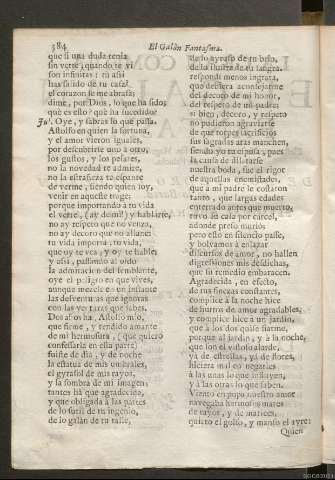 384
El Galàn Fantasma.
que si una duda tenia
sin verte, quando te vì
son infinitas: tù assi
has salido de tu casa?
el corazon se me abrasa;
dime, por Dios, lo que ha sido;
què es esto? què ha sucedido?
Jul. Oye, y sabràs lo que passa.
Astolfo en quien la fortuna,
y el amor vieron iguales,
por descubrirse uno à otro,
los gustos, y los pesares,
no la novedad te admire,
no la estrañeza te espante
de verme, siendo quien soy,
venir en aqueste trage:
porque importando à tu vida
el verte, (ay de mi!) y hablarte,
no ay respeto que no venza,
no ay decoro que no allane:
tu vida importa, tu vida,
que oy te vea, y oy te hable;
y assi, passando al oìdo
la admiracion del semblante,
oye el peligro en que vives,
aunque mezcle en un instante
las desventuras que ignoras
con las venturas que sabes.
Dos años ha, Astolfo mio,
que firme, y rendido amante
de mi hermosura, (què quiero
confessarla en esta parte)
fuiste de dia, y de noche
la estatua de mis umbrales,
el gyrasol de mis rayos,
y la sombra de mi imagen;
tantos ha que agradecida,
y que obligada à las partes
de lo sutil de tu ingenio,
de lo galàn de tu talle,
de lo ayroso de tu brio,
de lo ilustre de tu sangre,
respondì menos ingrata,
que debiera aconsejarme
del decoro de mi honor,
del respeto de mi padre:
si bien, decoro, y respeto
no pudieron agraviarse
de que torpes sacrificios
sus sagradas aras manchen,
siendo yo tu esposa; pues
la causa de dilatarse
nuestra boda, fue el rigor
de aquellas enemistades,
que à mi padre le costaron
tanto, que largas edades
enterrado antes que muerto,
tuvo su casa por carcel,
adonde preso muriò:
pero esto en silencio passe,
y bolvamos à enlazar
discursos de amor, no hallen
digressiones mis desdichas,
que su remedio embarazen.
Agradecida, en efecto,
de tus finezas constantes,
complice à la noche hice
de hurtos de amor agradables,
y complice hice à un jardin,
que à los dos quise fiarme,
porque al jardin, y à la noche,
que son el vistoso alarde,
ya de estrellas, ya de flores,
hiciera mal en negarles
à las unas lo que influyen,
y à las otras lo que saben.
Viento en popa nuestro amor
navegaba hermosos mares
de rayos, y de matices,
quieto el golfo, y manso el ayre:
Quien